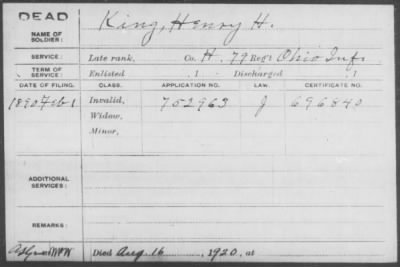 DEAD
King, Henry H.
NAME OF
SOLDIER:
SERVICE: Late rank, Co. H. 79 Reg't Ohio Inf.
TERM OF
SERVICE: Enlisted , 1 Discharged , 1
DATE OF FILING. CLASS. APPLICATION NO. LAW. CERTIFICATE NO.
1890 Feb 1 Invalid, 752963 J 696840
Widow,
Minor,
ADDITIONAL
SERVICES:
REMARKS:
Died Aug. 16, 1920, at